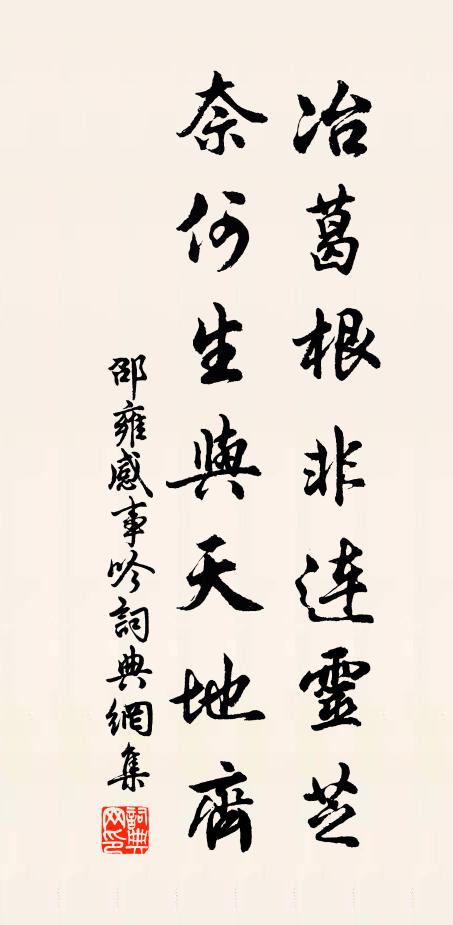 冶葛根非連靈芝
奈何生與天地齊
邵雍感事吟詞典網集
詞典網印